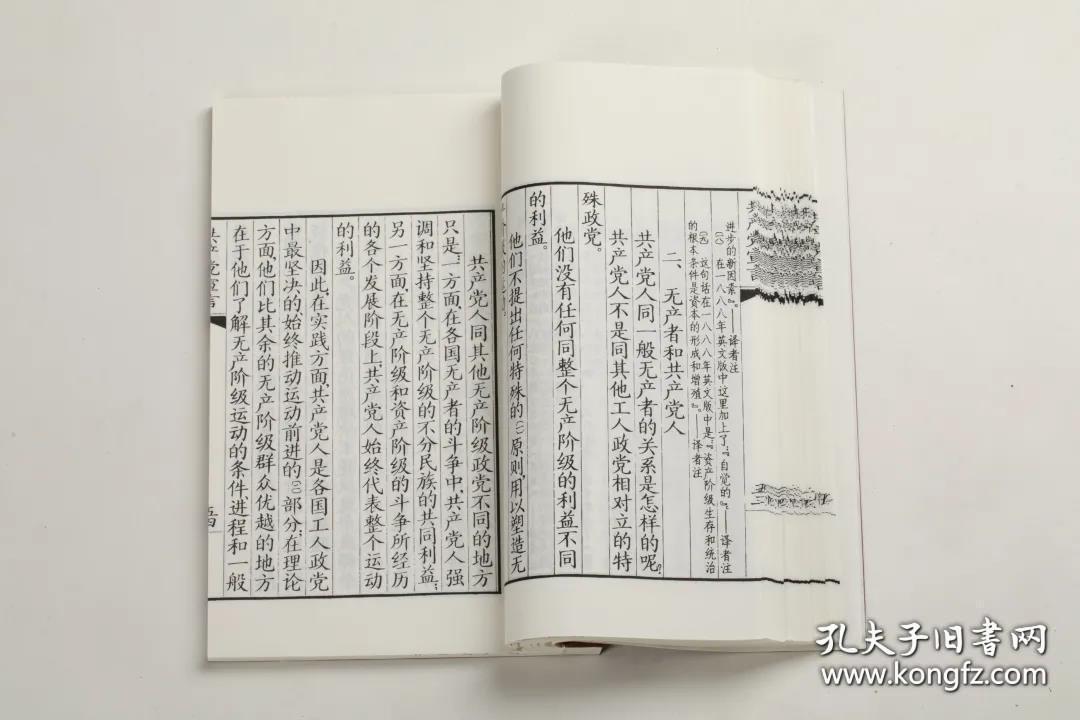 进步的新因素』。——译者注
〔八〕在一八八八年英文版中这里加上了：『自觉的』。——译者注
〔九〕这句话在一八八八年英文版中是：『资产阶级生存和统治
的根本条件是资本的形成和增殖』。——译者注
二、无产者和共产党人
共产党人同一般无产者的关系是怎样的呢？
共产党人不是同其他工人政党相对立的特
殊政党。
他们没有任何同整个无产阶级的利益不同
的利益。
他们不提出任何特殊的〔一〕原则，用以塑造无
共产党人同其他无产阶级政党不同的地方
只是：一方面，在各国无产者的斗争中，共产党人强
调和坚持整个无产阶级的不分民族的共同利益；
另一方面，在无产阶级和资产阶级的斗争所经历
的各个发展阶段上，共产党人始终代表整个运动
的利益。
因此，在实践方面，共产党人是各国工人政党
中最坚决的、始终推动运动前进的〔二〕部分；在理论
方面，他们比其余的无产阶级群众优越的地方
在于他们了解无产阶级运动的条件、进程和一般
共产党宣言
孔夫子旧书网
www.kongfz.com